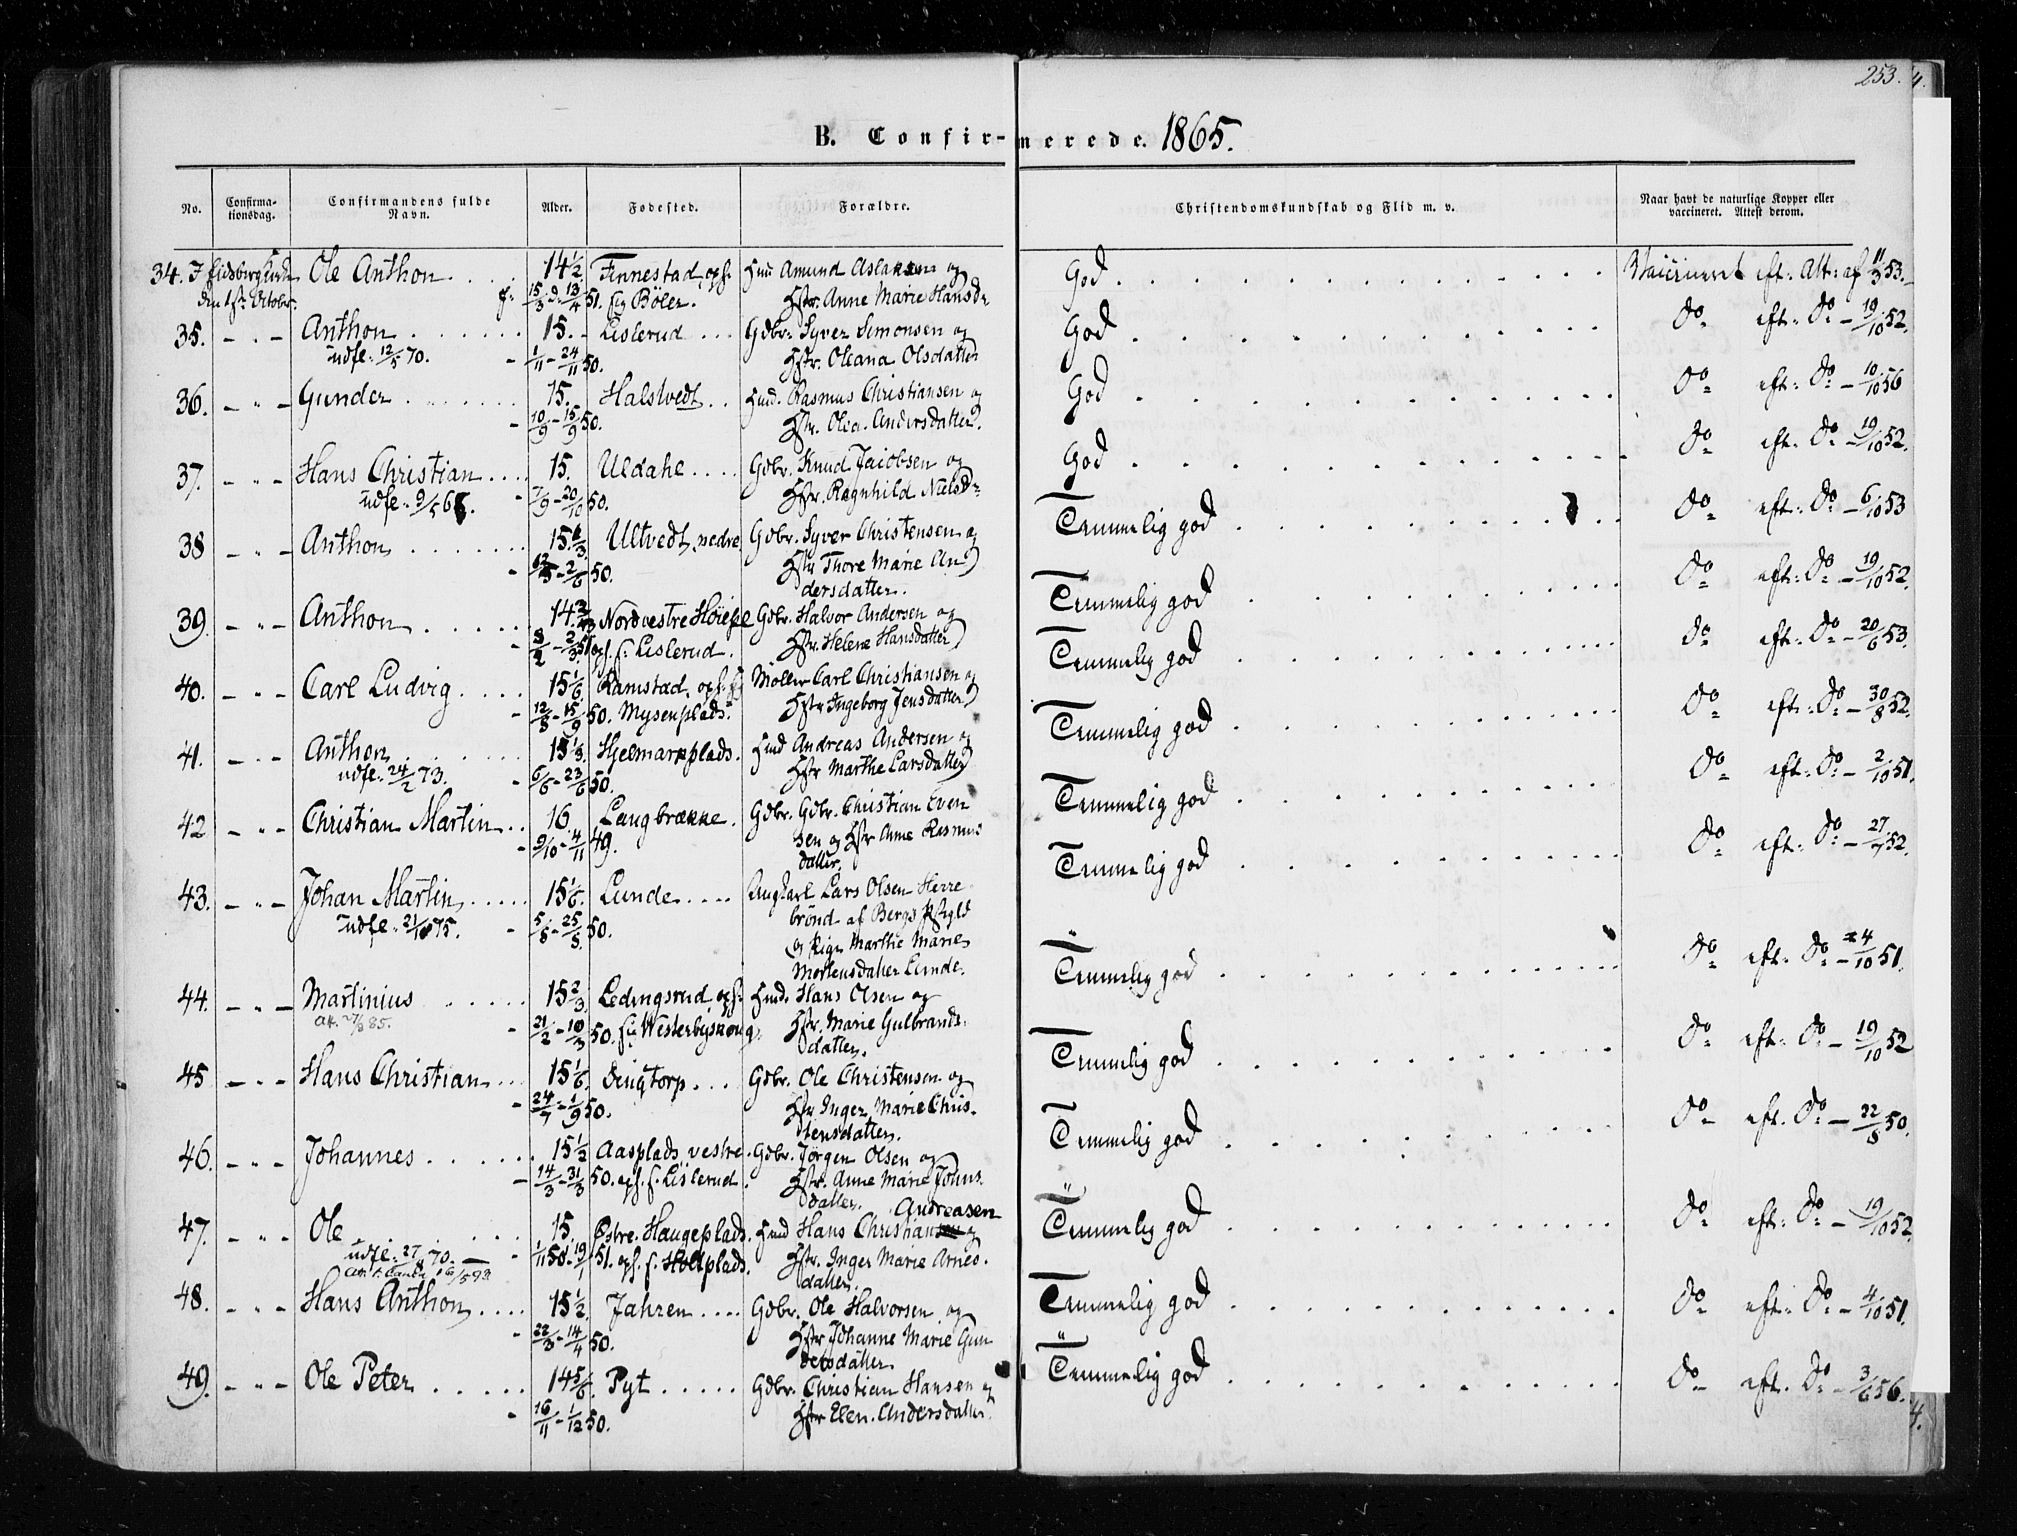 253.
B. Confirmerede. 1865.
No. Confirmationsdag. Confirmandens fulde Navn. Alder. Fødested. Forældre. Christendomskundskab og Flid m. v. Naar havt de naturlige Kopper eller vaccineret. Attest derom.
34. I Eidsberg Kirke Ole Anthon 14 1/2 Finnestad, ops. Hmd Amund Aslaksen og God Vaccineret eft. Att. af 11/3 53.
den 1ste Octobr. f. 15/3 d. 13/4 51. Bøler. Hstr. Anne Marie Hansdr
35. - " - Anthon 15. Lislerud Gdbr. Syver Simonsen og God do eft. do - 19/10 52.
udfl. 12/5 70. 1/11 - 24/11 50. Hstr. Oleana Olsdatter
36. - " - Gunder 15. Halstvedt Hmd. Rasmus Christiansen og God do eft. do - 10/10 56
10/9 - 15/9 50. Hstr. Olia Andersdatter.
37. - " - Hans Christian 15. Uldahl Gdbr. Knud Jacobsen og God do eft. do - 19/10 52.
udfl. 9/5 7/9 - 20/10 50. Hstr. Ragnhild Nielsdr
38 - " - Anthon 15 1/3 Ultvedt, nedre Gdbr. Syver Christensen og Temmelig god do eft. do - 6/10 53
2/6 50. Hstr Thore Marie An
dersdatter.
39. - " - Anthon 14 2/3 Nordvestre Gdbr. Halvor Andersen og Temmelig god do eft. do - 19/10 52.
2/3 51 ops. f. Lislerud. Hstr. Helene Hansdatter
40. - " - Carl Ludvig 15 1/6 Ramstad, ops. Møller Carl Christiansen og Temmelig god do eft. do - 20/6 53.
12/8 - 15/9 50. Mysenplads. Hstr Ingeborg Jensdatter
41. - " - Anthon 15 1/3. Hjelmarkplads. Hmd Andreas Andersen og Temmelig god do eft. do - 30/8 52.
udfl. 24/2 73. 6/6 - 23/6 50. Hstr Marthe Larsdatter
42 - " - Christian Martin 16. Langbrække. Gdbr. Gdbr. Christian Even Temmelig god do eft. do - 2/10 51.
9/10 - 4/11 49. sen og Hstr Anne Rasmus
datter.
43. - " - Johan Martin 15 1/6. Lunde Ungkarl Lars Olsen Herre Temmelig god do eft. do - 27/7 52.
udfl. 75. 5/8 - 25/8 50. brønd af Bergs
og Pige Marthe Marie
Mortensdatter Lunde.
44. - " - Martinius 15 2/3 Ledingsrud ops. Hmd. Hans Olsen og Temmelig god do eft. do - 4/10 51.
85. 21/2 - 10/3 50. f. Westerbyskoug. Hstr. Marie Gulbrands-
datter.
45 - " - Hans Christian 15 1/6. Dingtorp Gdbr. Ole Christensen og Temmelig god do eft. do - 19/10 52
24/7 - 1/9 50. Hstr Inger Marie Chris-
tensdatter.
46. - " - Johannes 15 1/2 Aasplads, vestre Gdbr. Jørgen Olsen og Temmelig god do eft. do - 22/8 50.
14/3 - 31/3 50. ops. f. Lislerud. Hstr. Anne Marie Johns
datter. Andreasen
47. - " - Ole 15. Østre Haugeplads. Hmd Hans Christiansen og Temmelig god do eft. do - 19/10 52.
udfl. 27/8 70. 1/11 50 - 19/1 51. ops. f. Hstr. Inger Marie Arnes-
datter.
48. - " - Hans Anthon 15 1/2. Jahren Gdbr. Ole Halvorsen og Temmelig god do eft. do - 4/10 51.
22/3 - 14/4 50. Hstr Johanne Marie Gun
dersdatter
49. - " - Ole Peter 14 5/6. Pyt Gdbr. Christian Hansen og Temmelig god do eft. do - 3/6 56.
16/11 - 1/12 50. Hstr Elen Andersdatter.